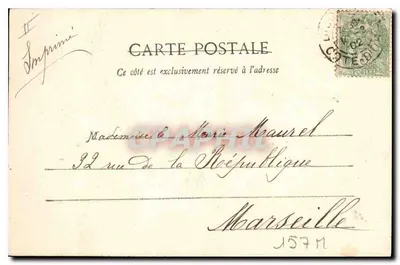 II
Imprimé
CARTE POSTALE
Ce côté est exclusivement réservé à l'adresse
CÔTE-D'OR
02
Mademoiselle Marie Maurel
92 rue de la République
Marseille
157M